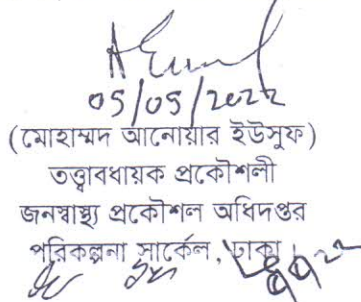 05/05/2022
(মোহাম্মদ আনোয়ার ইউসুফ)
তত্ত্বাবধায়ক প্রকৌশলী
জনস্বাস্থ্য প্রকৌশল অধিদপ্তর
পরিকল্পনা সার্কেল, ঢাকা।